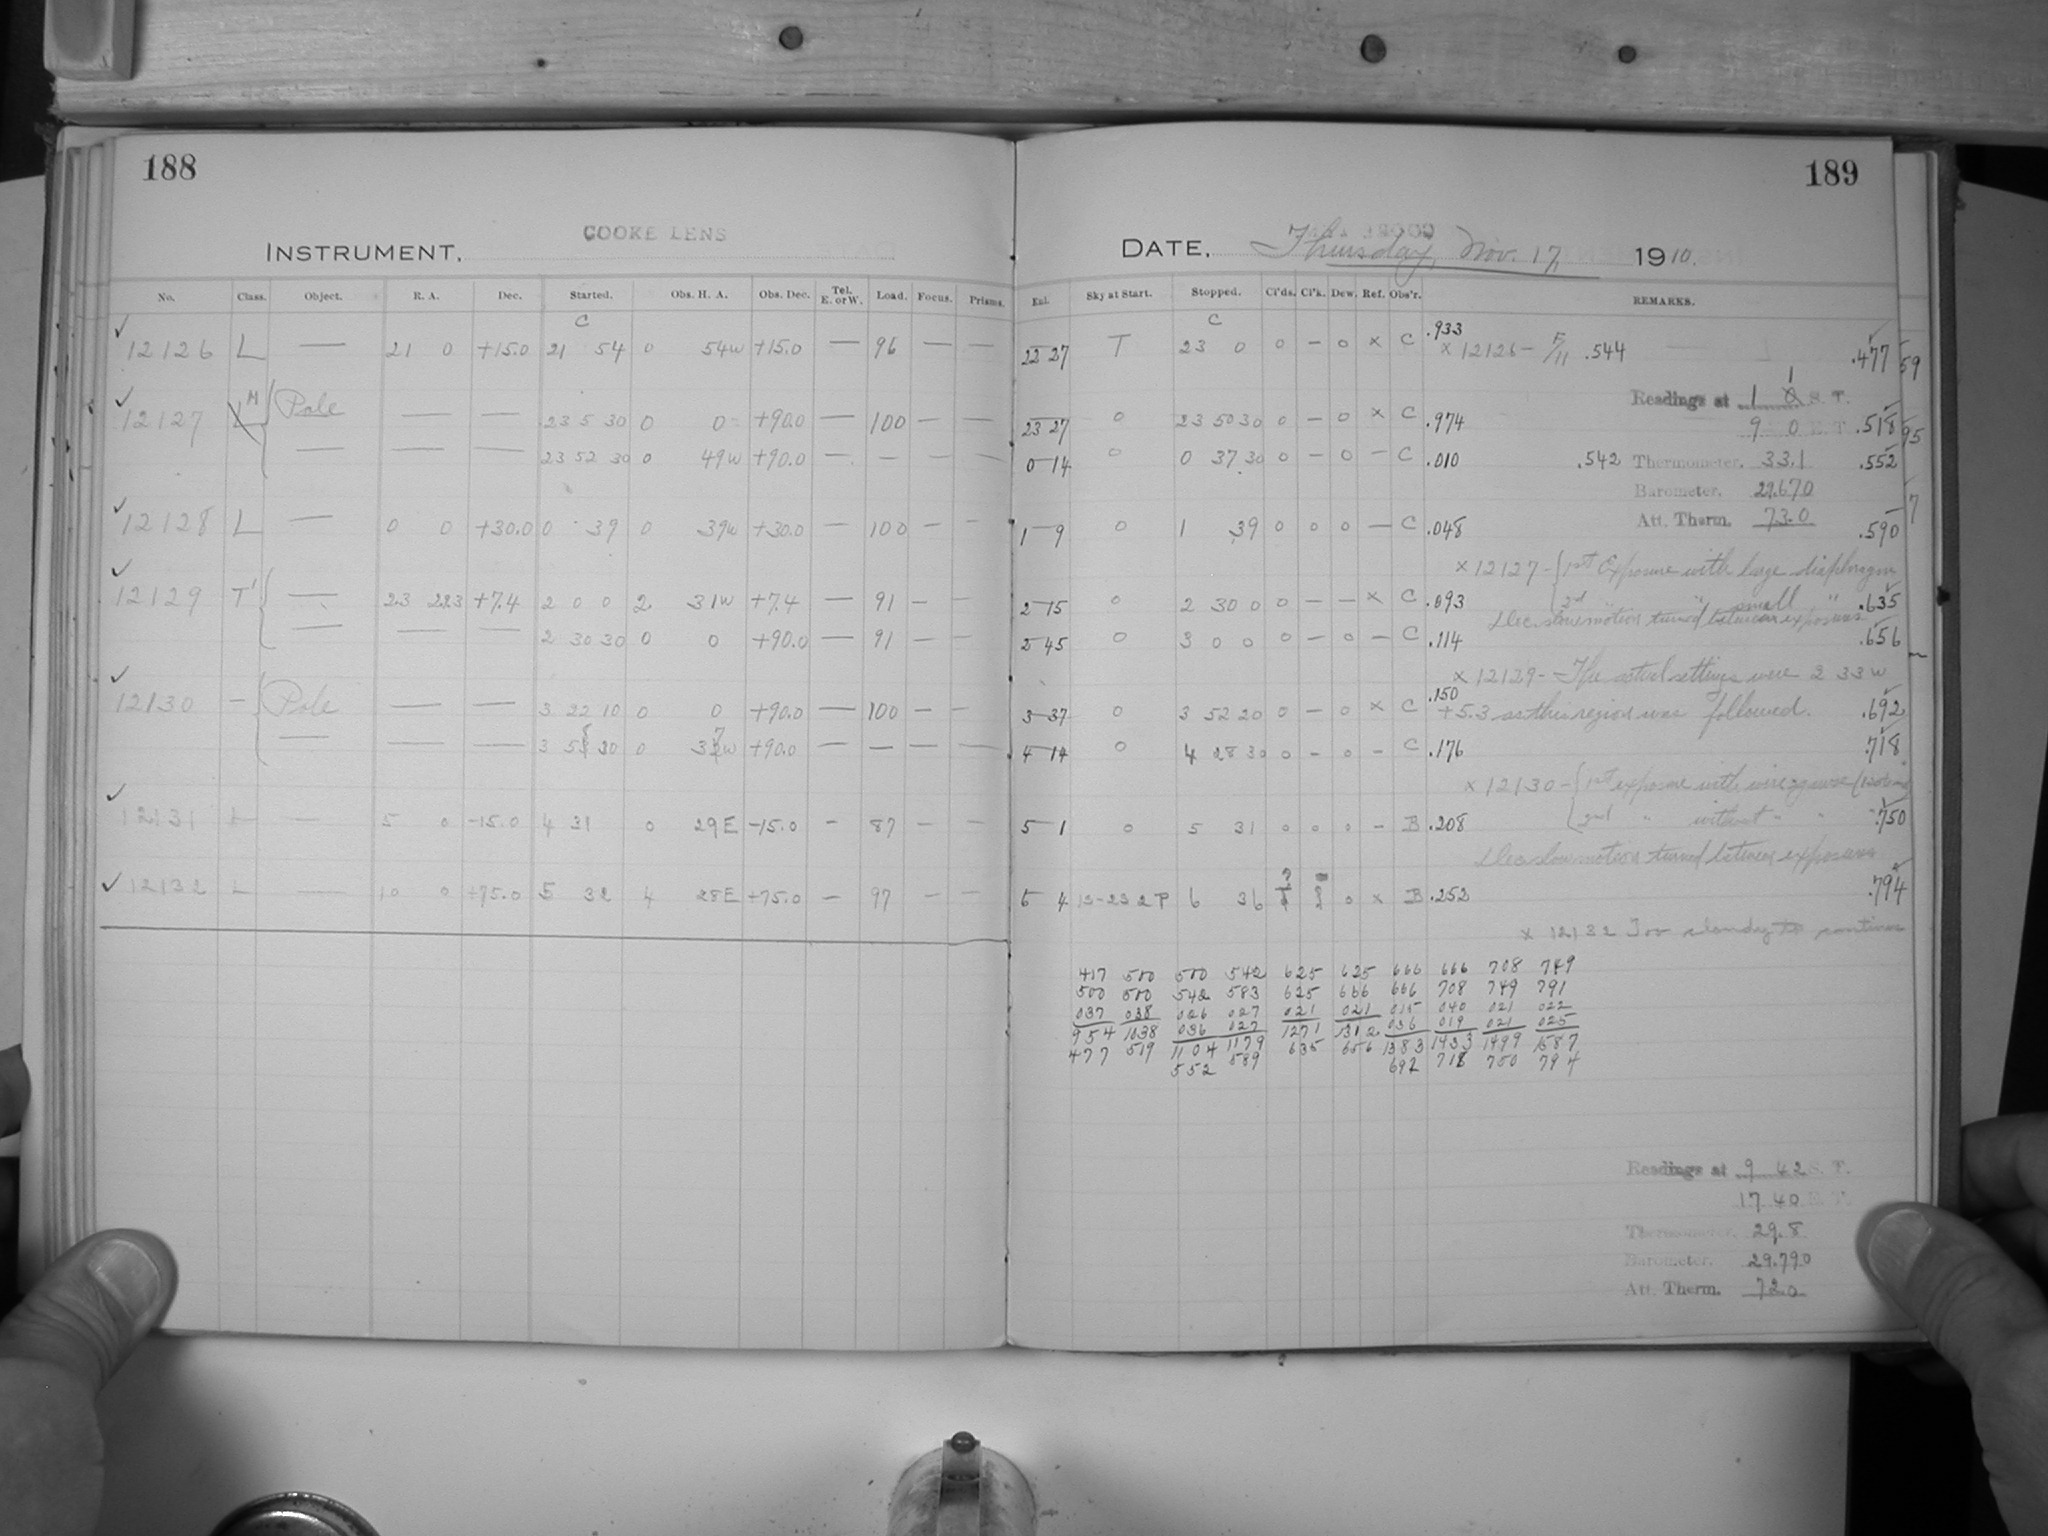 188
COOKE LENS
INSTRUMENT.
No. Class. Object. R. A. Dec. Started. Obs. H. A. Obs. Dec. Tel. E. or W. Load. Focus. Prisms.
C
✓ 12126 L — 21 0 +15.0 21 54 0 54w +15.0 — 96 — —
✓ 12127 M Pole — — 23 5 30 0 0 +90.0 — 100 — —
— — — 23 52 30 0 49w +90.0 — — — —
✓ 12128 L — 0 0 +30.0 0 39 0 39w +30.0 — 100 — —
✓ 12129 T' — 23 22.3 +7.4 2 0 0 2 31w +7.4 — 91 — —
— — — 2 30 30 0 0 +90.0 — 91 — —
✓ 12130 — Pole — — 3 22 10 0 0 +90.0 — 100 — —
— — — 3 58 30 0 37w +90.0 — — — —
✓ 12131 L — 5 0 -15.0 4 31 0 29E -15.0 - 87 - -
✓ 12132 L — 10 0 +75.0 5 32 4 28E +75.0 — 97 — —
189
DATE, Thursday, Nov. 17, 1910.
Exl. Sky at Start. Stopped. Cl'ds. Cl'k. Dew. Ref. Obs'r. REMARKS.
C
22 27 T 23 0 0 - 0 x C .933 x 12126 - F/11 .544 .477 59
Readings at 1 1 S. T.
9 0 E. T.
23 27 0 23 50 30 0 - 0 x C .974 .518 95
0 14 0 0 37 30 0 - 0 - C .010 .542 Thermometer. 33.1 .552
Barometer. 29.670
Att. Therm. 73.0
1 9 0 1 39 0 0 0 — C .048 .590 7
x 12127 - 1st Exposure with large diaphragm
2nd " " small "
2 15 0 2 30 0 0 — — x C .093 .635
Dec. slow motion turned between exposures
2 45 0 3 0 0 0 - 0 - C .114 .656
x 12129 - The actual settings were 2 33 w
+5.3 as this region was followed.
3 37 0 3 52 20 0 - 0 x C .150 .692
4 14 0 4 28 30 0 - 0 - C .176 .718
x 12130 - 1st exposure with wire gauze
2nd " without " "
5 1 0 5 31 0 0 0 - B .208 .750
Dec slow motion turned between exposures
5 4 13-23 2 P 6 36 0 x B .252 .794
x 12132 Too cloudy to continue
417 500 500 542 625 625 666 666 708 749
500 500 542 583 625 666 666 708 749 791
037 038 026 027 021 021 015 040 021 022
036 027 036 019 021 025
954 1038 1104 1179 1271 1312 1383 1433 1499 1587
477 519 552 589 635 656 692 718 750 794
Readings at 9 42 S. T.
17 40 E. T.
Thermometer. 29.8
Barometer. 29.790
Att. Therm. 72.0